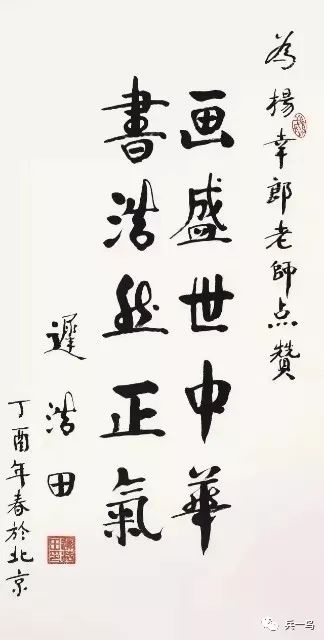 为楊幸郎老師点贊
画盛世中華
書浩然正氣
遲浩田
丁酉年春於北京
兵一鸟